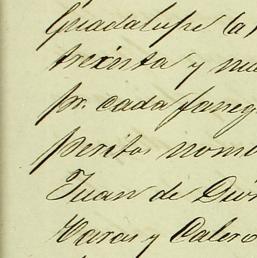 Guadalupe (a)
treinta y nu
pr. cada faneg
peritos nom
Juan de Dio
Haras y Calero